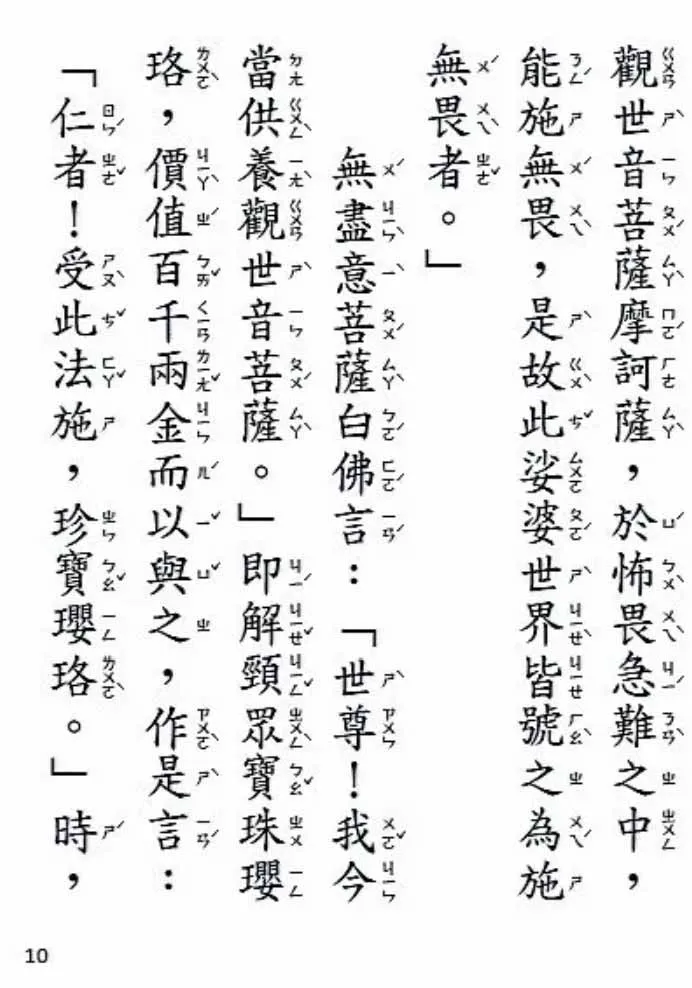 觀世音菩薩摩訶薩，於怖畏急難之中，
能施無畏，是故此娑婆世界皆號之為施
無畏者。」
無盡意菩薩白佛言：「世尊！我今
當供養觀世音菩薩。」即解頸眾寶珠瓔
珞，價值百千兩金而以與之，作是言：
「仁者！受此法施，珍寶瓔珞。」時，
10